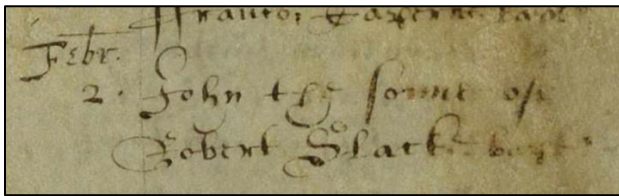 Febr.
2. John the sonne of
Robert Slacke bapt